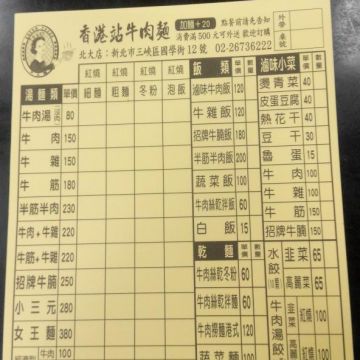 香港站牛肉麵 加麵+20 點餐前請先告知
消費滿500元可外送 歡迎訂購
北大店：新北市三峽區國學街12號 02-26736222
外帶 桌號
湯麵類 單價 紅燒細麵 紅燒粗麵 紅燒冬粉 紅燒泡飯
牛肉湯 80
牛肉 150
牛雜 150
牛筋 180
半筋半肉 230
牛肉+牛雜 220
牛筋+牛雜 220
招牌牛腩 250
小三元 280
女王麵 380
牛肉 100
飯類 單價 數量
滷味牛肉飯 120
牛雜飯 120
招牌牛腩飯 200
半筋半肉飯 200
蔬菜飯 100
牛肉絲乾拌飯 60
白飯 15
乾麵 單價 數量
牛肉絲乾冬粉 60
牛肉絲乾拌麵 60
牛肉撈麵港式 120
蔬菜麵 100
滷味小菜 單價 數量
燙青菜 40
皮蛋豆腐 40
熱花干 40
豆干 30
魯蛋 15
牛肉 100
牛雜 100
牛筋 150
招牌牛腩 150
水餃
韭菜 65
高麗菜 65
牛肉湯餃
韭菜 紅燒 100
高麗菜 紅燒 100